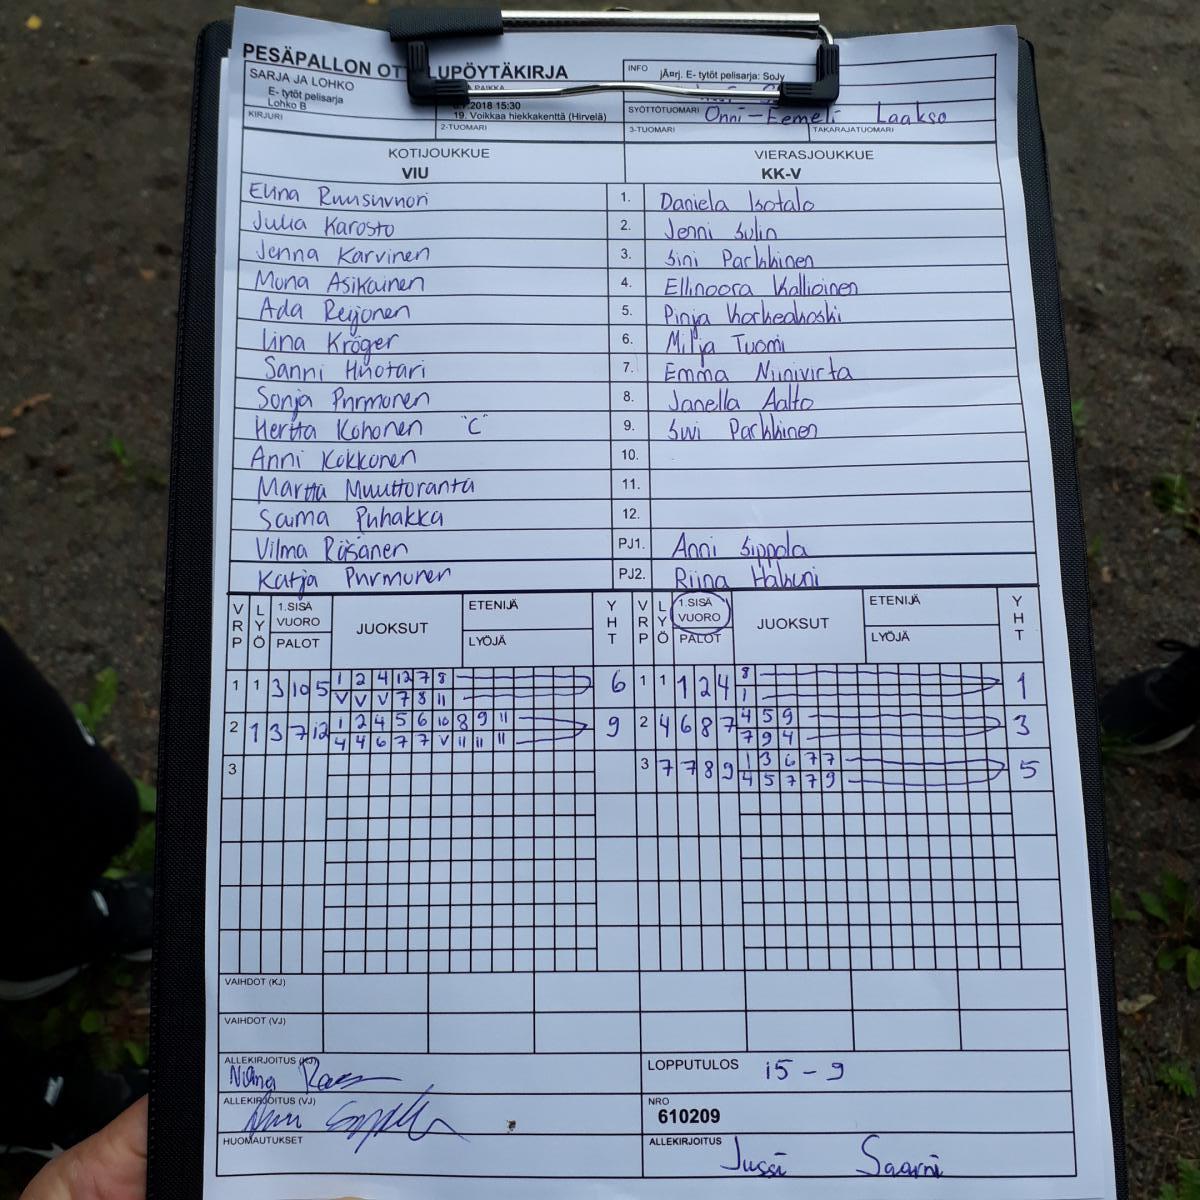 PESÄPALLON
SARJA JA LOHKO
E- tytöt pelisarja
Lohko B
KIRJURI
2018 15:30
19. Voikkaa hiekkakenttä (Hirvelä)
2-TUOMARI
INFO jÄ¤rj. E- tytöt pelisarja: SoJy
SYÖTTÖTUOMARI Onni-Eemeli Laakso
3-TUOMARI TAKARAJATUOMARI
KOTIJOUKKUE VIERASJOUKKUE
VIU KK-V
Elina Ruusuvuori 1. Daniela Isotalo
Julia Karosto 2. Jenni Sulin
Jenna Karvinen 3. Sini Parkkinen
Mona Asikainen 4. Ellinoora Kallioinen
Ada Reijonen 5. Pinja Korkeakoski
Iina Kröger 6. Milja Tuomi
Sanni Huotari 7. Emma Niinivirta
Sonja Purmonen 8. Janella Aalto
Hertta Kohonen "C" 9. Suvi Parkkinen
Anni Kokkonen 10.
Martta Muuttoranta 11.
Saima Puhakka 12.
Vilma Räsänen PJ1. Anni Sippola
Katja Purmonen PJ2. Riina
VRP LYÖ 1.SISÄ VUORO PALOT JUOKSUT ETENIJÄ LYÖJÄ YHT VRP LYÖ 1.SISÄ VUORO PALOT JUOKSUT ETENIJÄ LYÖJÄ YHT
1 1 3 10 5 1 2 4 12 7 8 6 1 1 1 2 4 8 1
V V V 7 8 11 1
2 1 3 7 12 1 2 4 5 6 10 8 9 11 9 2 4 6 8 7 4 5 9 3
4 4 6 7 7 V 11 11 11 7 9 4
3 3 7 7 8 9 1 3 6 7 7 5
4 5 7 7 9
VAIHDOT (KJ)
VAIHDOT (VJ)
ALLEKIRJOITUS (KJ)
LOPPUTULOS 15 - 9
ALLEKIRJOITUS (VJ)
NRO
610209
HUOMAUTUKSET
ALLEKIRJOITUS Jussi Saarni